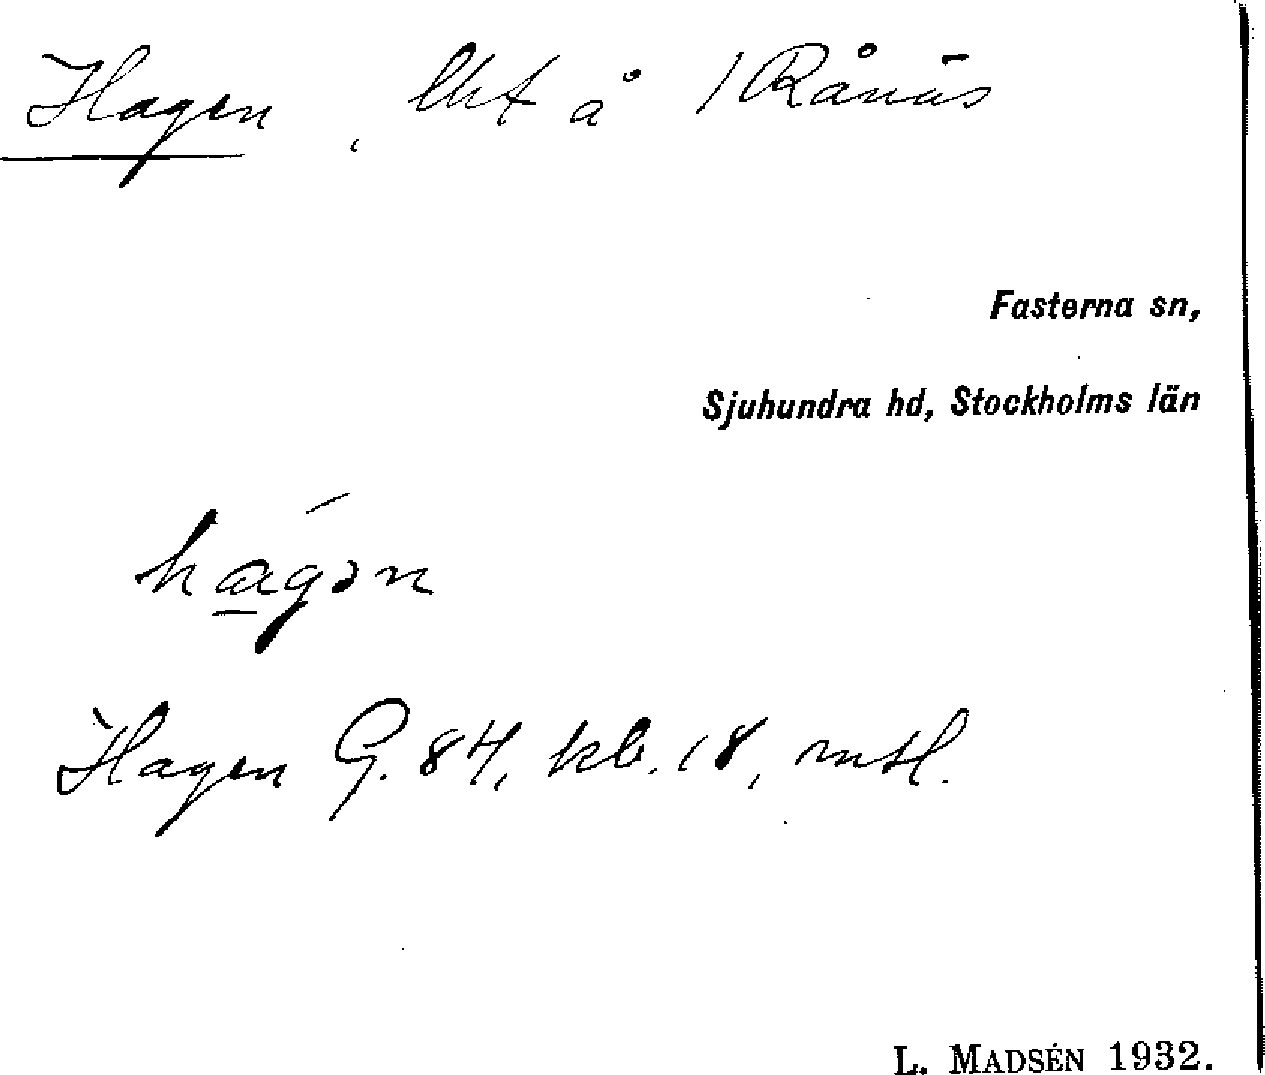 Hagen, lht å 1 Rånäs
Fasterna sn,
Sjuhundra hd, Stockholms län
hagən
Hagen G. 84, kb. 18, mtl.
L. MADSÉN 1932.